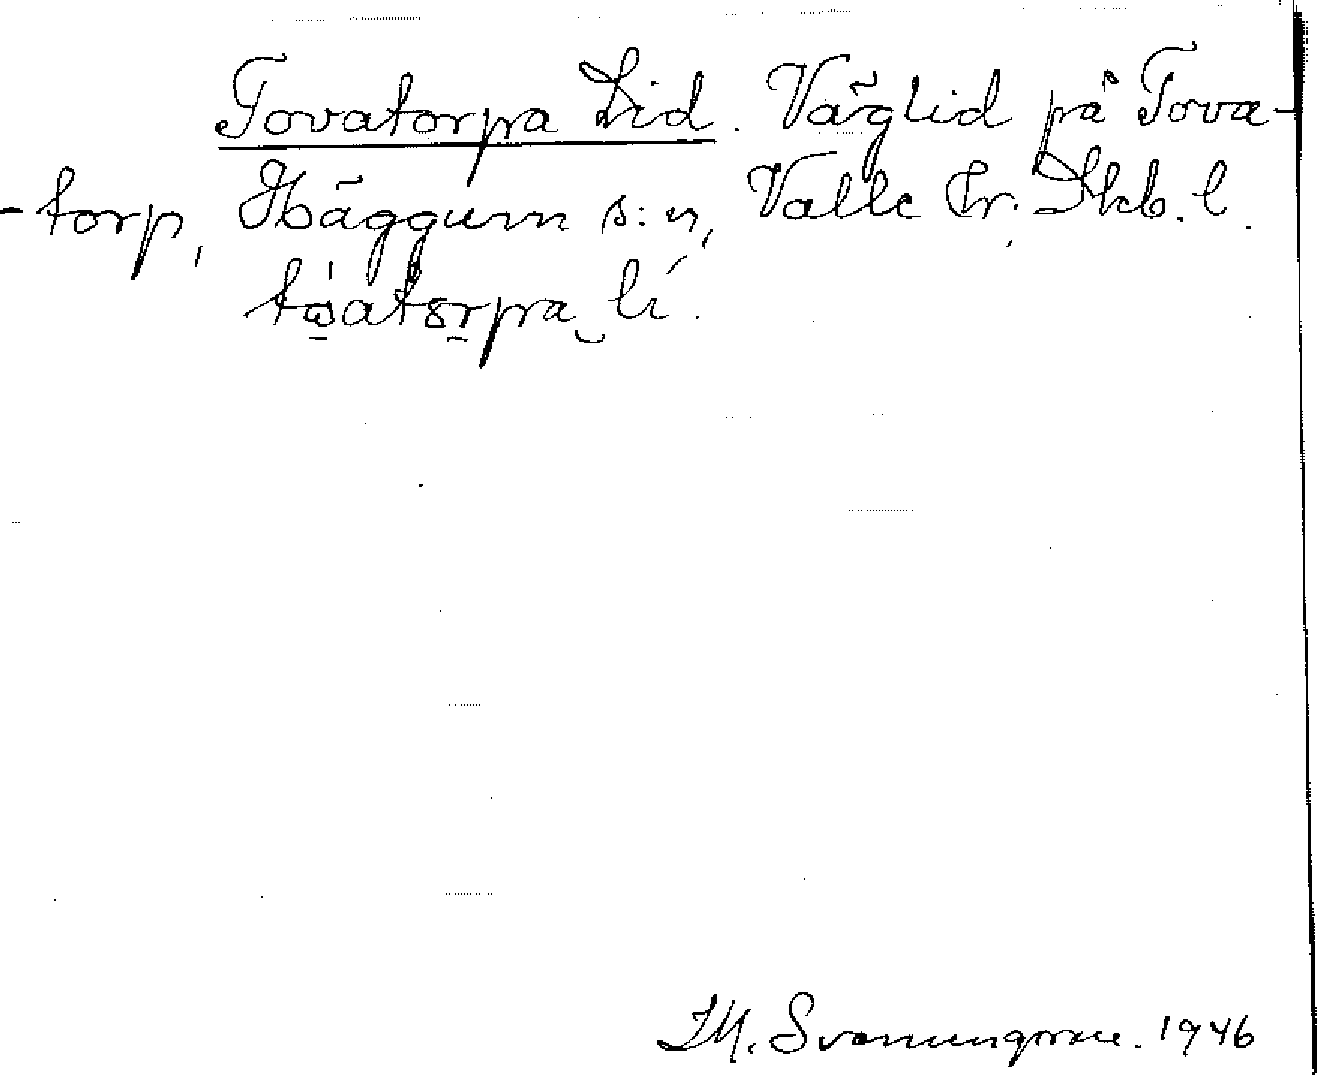 Tovatorpa Lid. Väglid på Tova-
-torp, Häggum s:n, Valle hr. Skb. l.
tɷ̀atɔrpa lí.
IM. Svanungsson. 1946